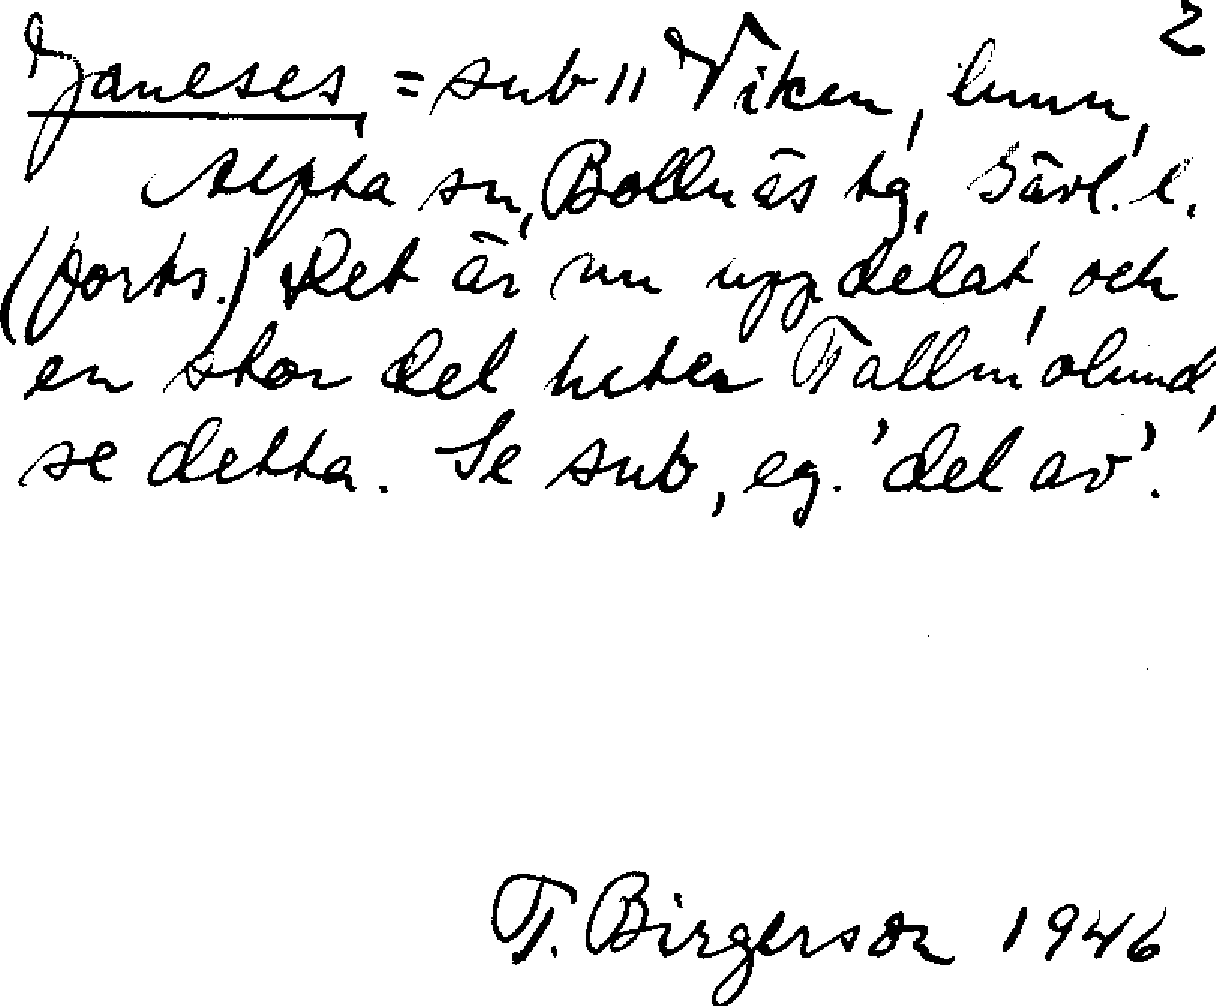 2
Janeses, = sub 11 Viken, hmn,
Alfta sn, Bollnäs tg, Gävl. l.
(forts.) Det är nu uppdelat, och
en stor del heter Tallmolund,
se detta. Se sub, eg. 'del av'.
T. Birgerson 1946